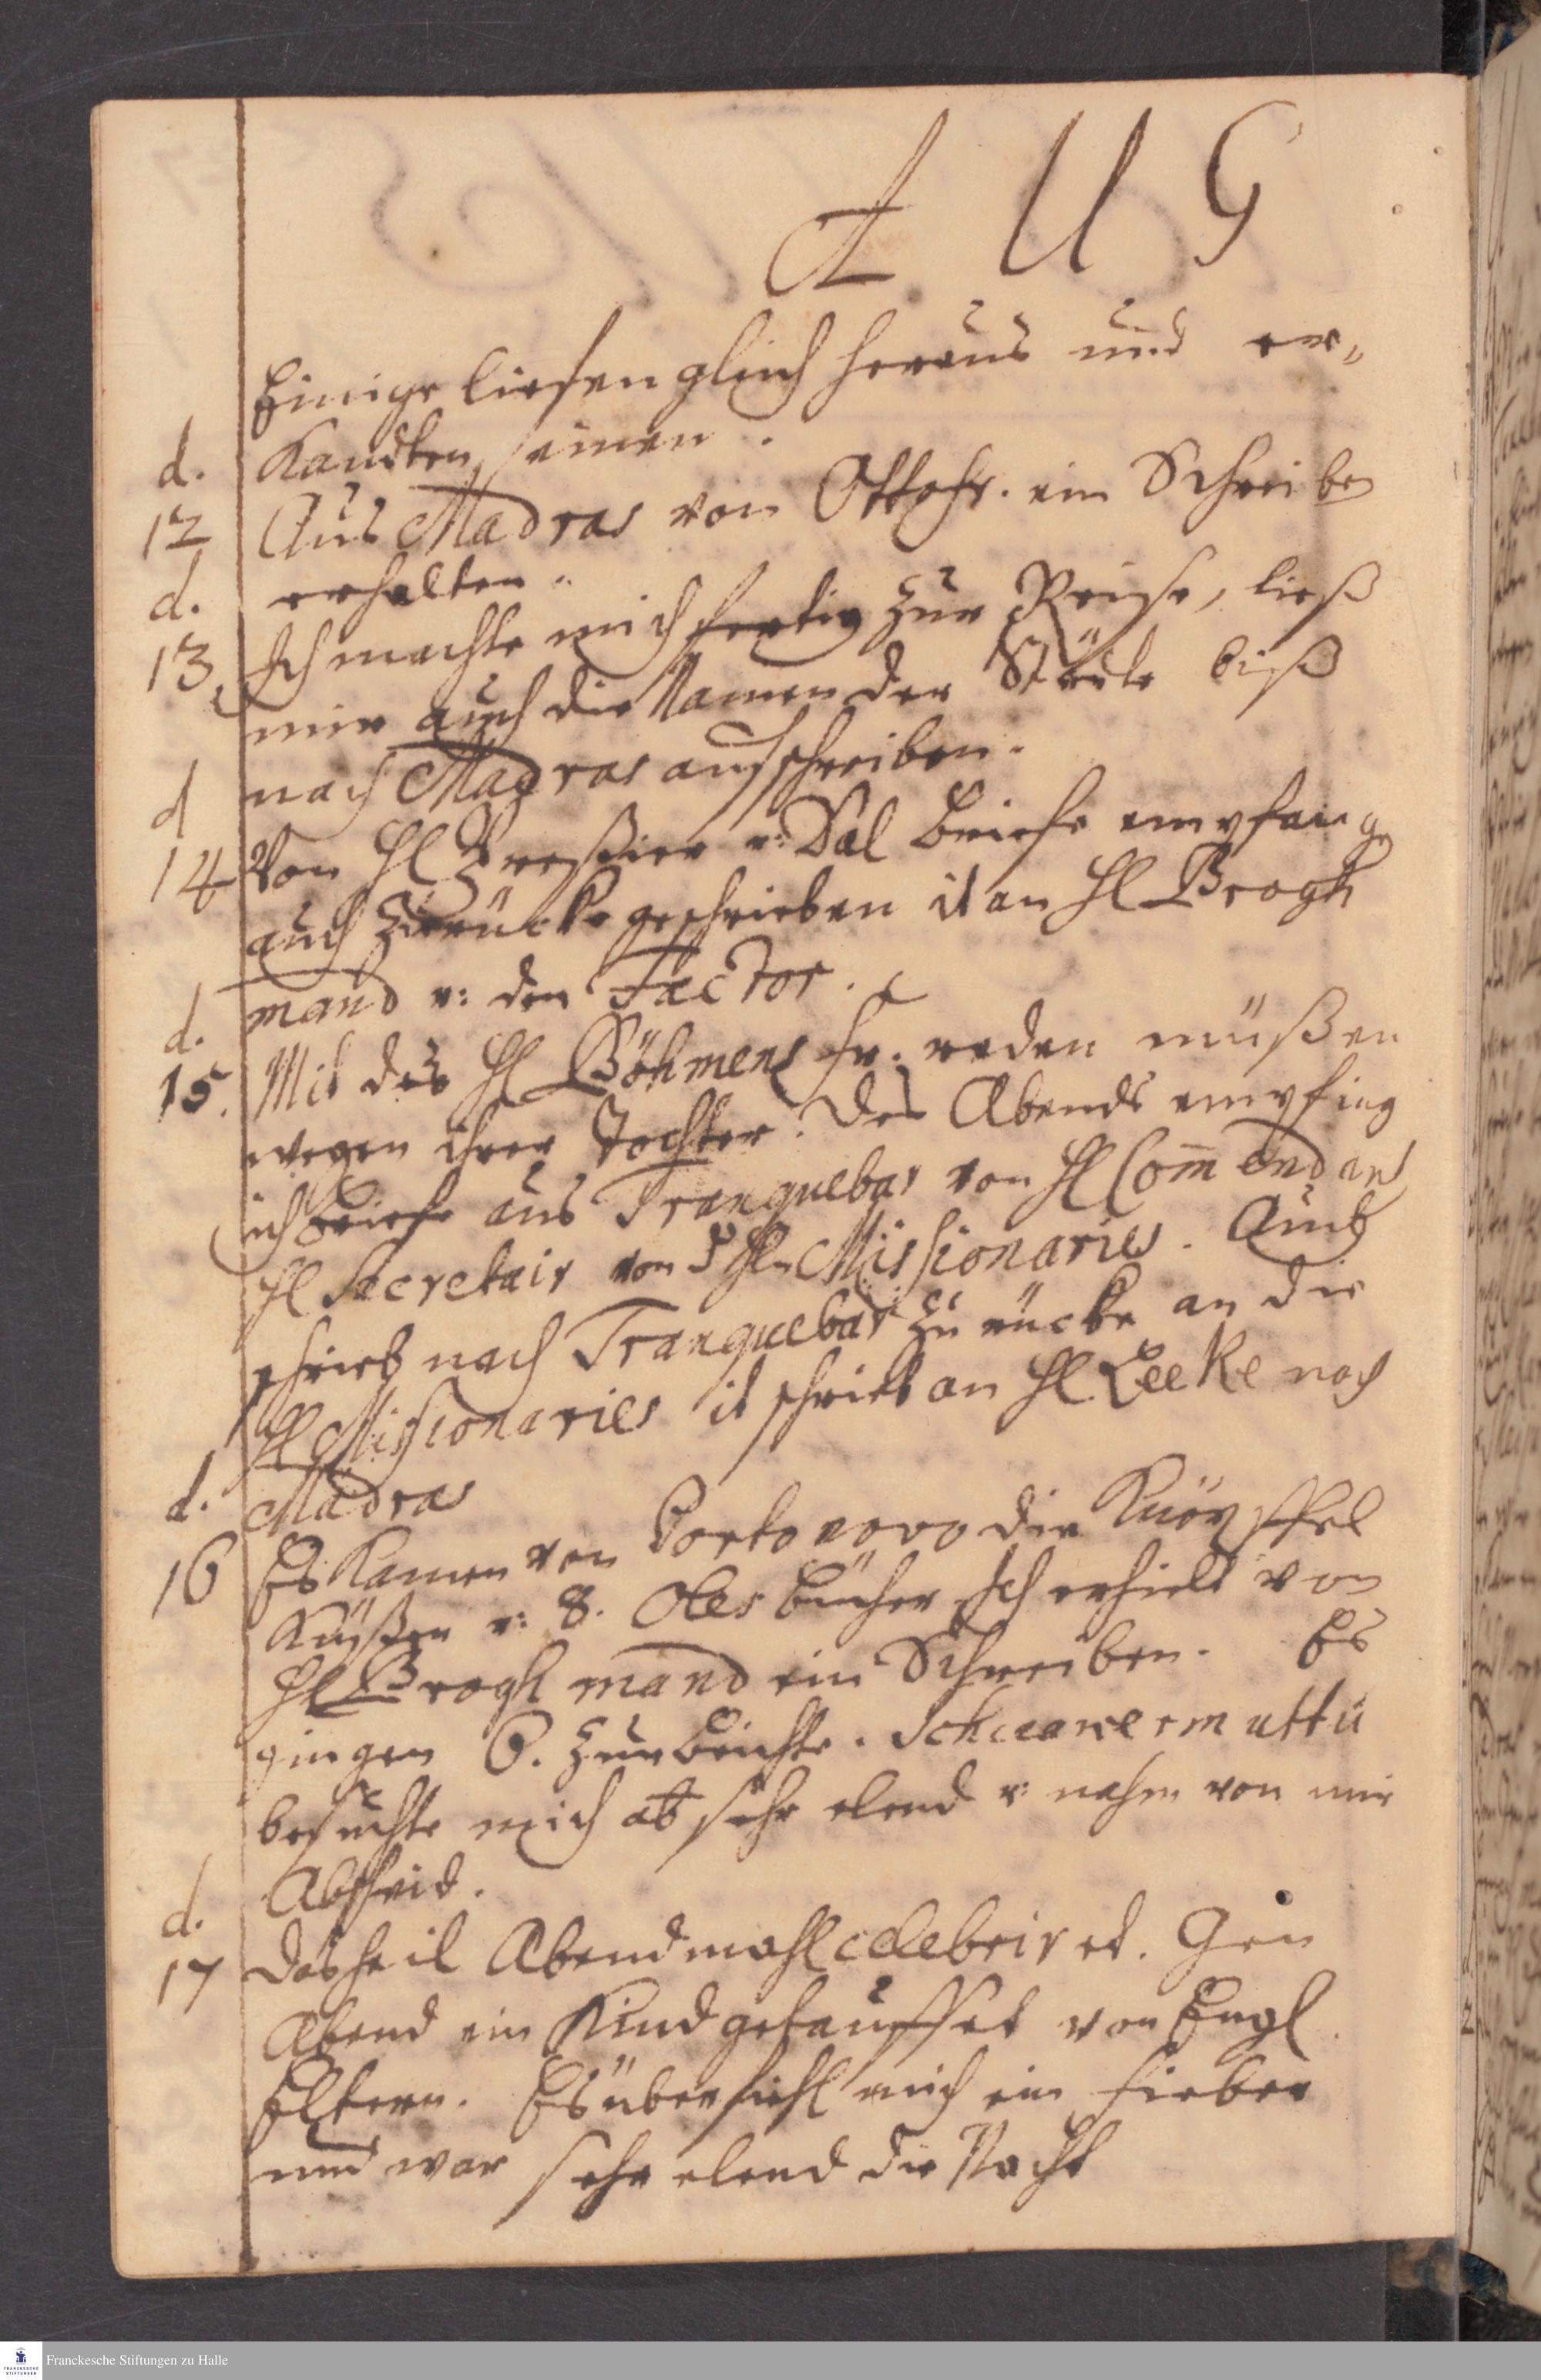 AUG
Einige liefen gleich heraus und er„
d. Kandten einen.
12 Aus Madras von Ottohr. ein Schreiben
d. erhalten.
13 Ich machte mich fertig zur Reise, ließ
mir auch die Namen der Städte biß
d nach Madras aufschreiben.
14 Von Hl Pressier u: Dal Briefe empfang
auch zurücke geschrieben it an Hl Brogh
d. mand u: den Factor.
15. Mit des Hl Böhmens fr. reden müßen
wegen ihrer Tochter. Des Abends empfing
ich Briefe aus Tranquebar von Hl Com̄endant
Hl Secretair von d Hln Missionaries. Auch
schrieb nach Tranquebar zurücke an die
Hl Missionaries it schrieb an Hl Leeke nach
d. Madras
16 Es Kamen von Porto novo die
Küßen u: 8. Oles bücher Ich erhielt von
Hl Broghmand ein Schreiben. Es
gingen 6. zur beichte. Schawermuttu
besuchte mich ab sehr elend u: nahm von mir
d. Abscheid.
17 das heil Abendmahl celebriret. Gen
Abend ein Kind getauffet von Engl.
Eltern. Es überfiehl mich ein fieber
und war sehr elend die Nacht
Franckesche Stiftungen zu Halle